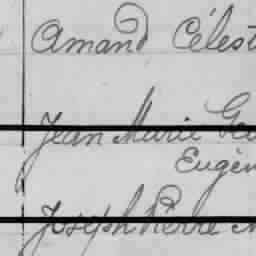 Amand Célest
Jean Marie Geo
Eugèn
Joseph Pierre M